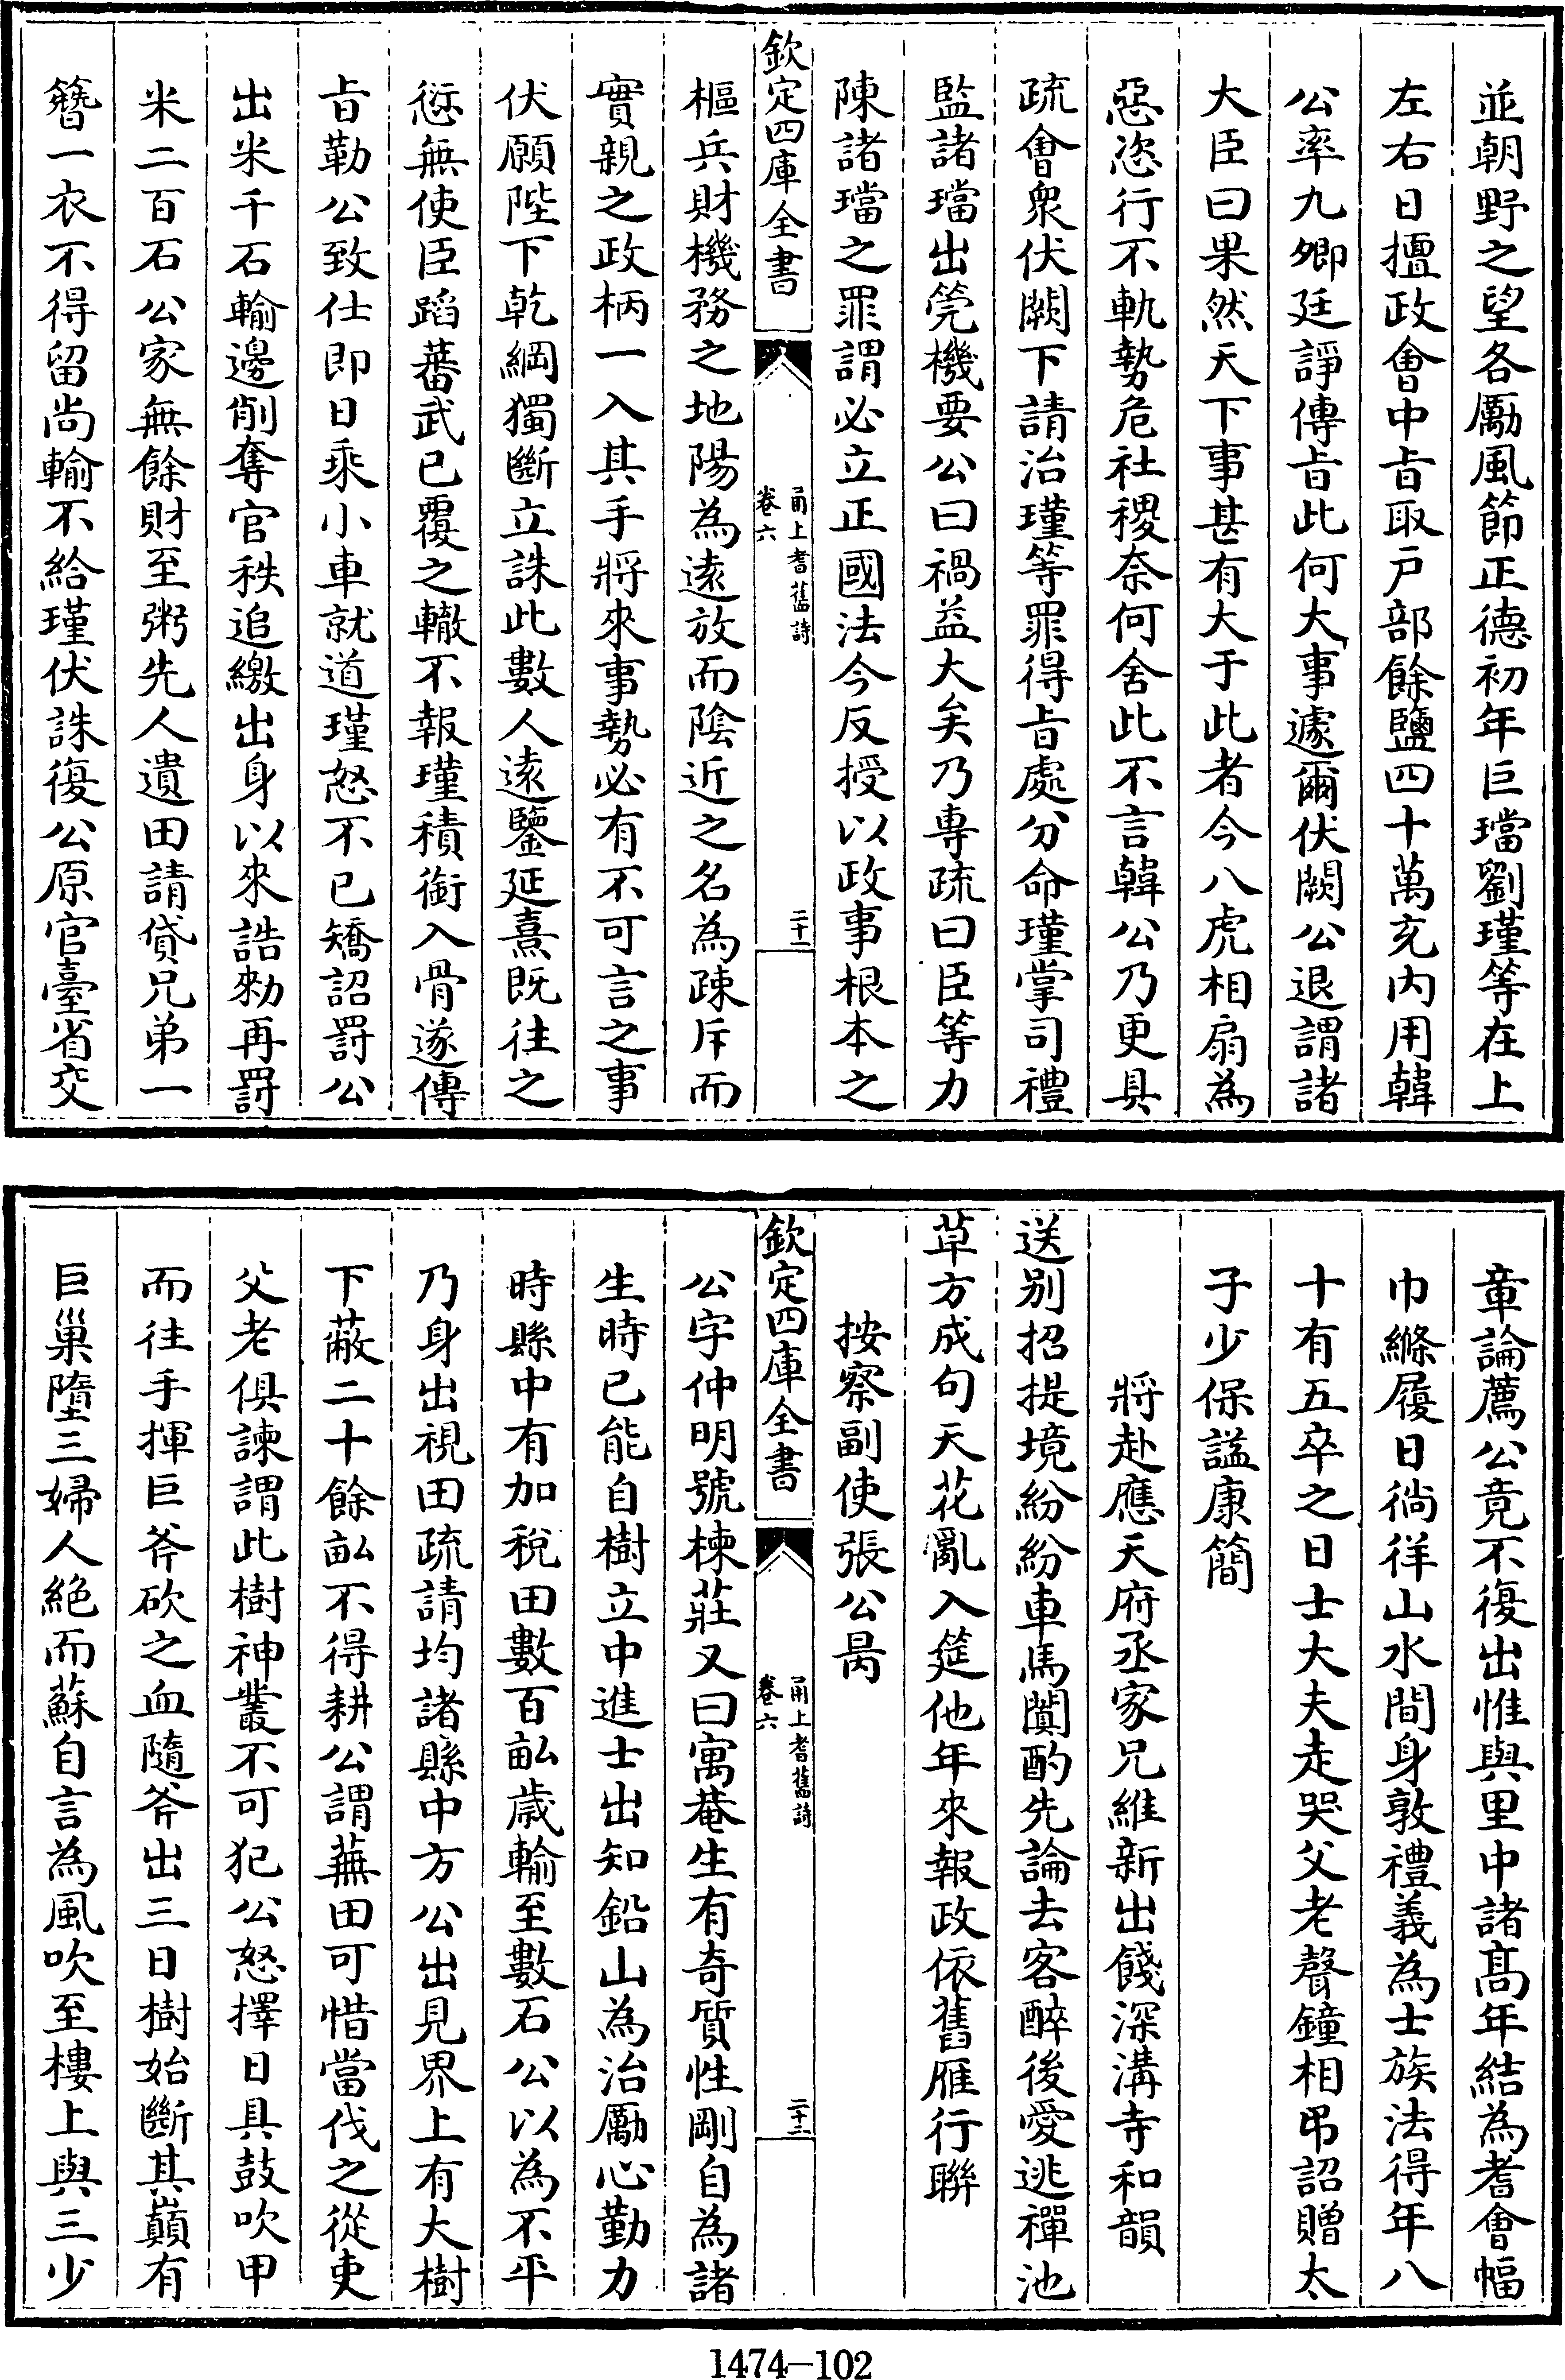 並朝野之望各勵風節正德初年巨璫劉瑾等在上
左右日擅政會中旨取戸部餘鹽四十萬充内用韓
公率九卿廷諍傳旨此何大事遽爾伏闕公退謂諸
大臣曰果然天下事甚有大于此者今八虎相扇為
惡恣行不軌勢危社稷奈何舍此不言韓公乃更具
疏會衆伏闕下請治瑾等罪得旨處分命瑾掌司禮
監諸璫出筦機要公曰禍益大矣乃專疏曰臣等力
陳諸璫之罪謂必立正國法今反授以政事根本之
欽定四庫全書
甬上耆舊詩
卷六
二十一
樞兵財機務之地陽為逺放而隂近之名為疎斥而
實親之政柄一入其手將來事勢必有不可言之事
伏願陛下乾綱獨斷立誅此數人逺鑒延熹既往之
愆無使臣蹈蕃武已覆之轍不報瑾積銜入骨遂傳
旨勒公致仕即日乘小車就道瑾怒不已矯詔罸公
出米千石輸邊削奪官秩追繳出身以來誥勅再罸
米二百石公家無餘財至粥先人遺田請貸兄弟一
簪一衣不得留尚輸不給瑾伏誅復公原官臺省交
章論薦公竟不復出惟與里中諸髙年結為耆會幅
巾縧履日徜徉山水間身敦禮義為士族法得年八
十有五卒之日士大夫走哭父老聲鐘相弔詔贈太
子少保諡康簡
將赴應天府丞家兄維新出餞深溝寺和韻
送别招提境紛紛車馬闐酌先論去客醉後愛逃禪池
草方成句天花亂入筵他年來報政依舊雁行聯
按察副使張公昺
欽定四庫全書
甬上耆舊詩
卷六
二十二
公字仲明號楝莊又曰寓菴生有奇質性剛自為諸
生時已能自樹立中進士出知鉛山為治勵心勤力
時縣中有加稅田數百畝歲輸至數石公以為不平
乃身出視田疏請均諸縣中方公出見界上有大樹
下蔽二十餘畝不得耕公謂蕪田可惜當伐之從吏
父老俱諫謂此樹神叢不可犯公怒擇日具鼓吹甲
而往手揮巨斧砍之血隨斧出三日樹始斷其巔有
巨巢墮三婦人絶而蘇自言為風吹至樓上與三少
1474—102